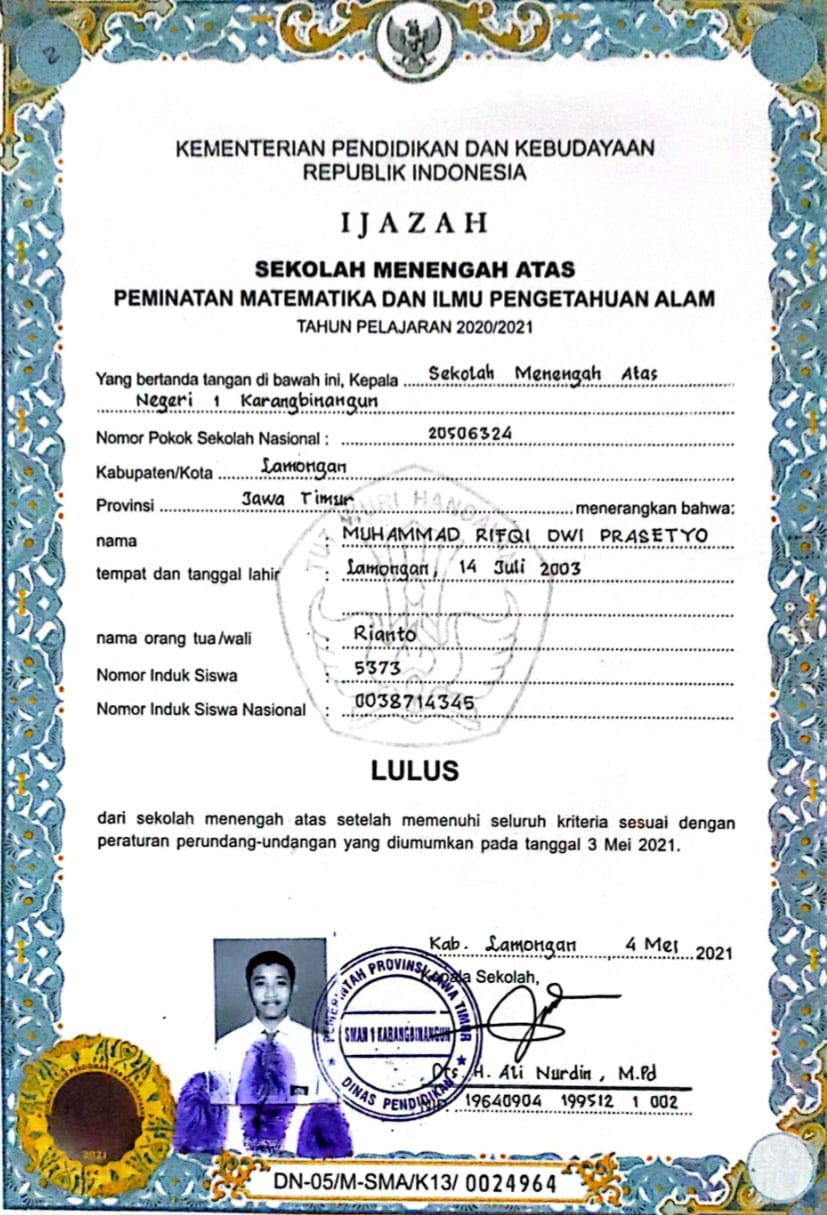 2
KEMENTERIAN PENDIDIKAN DAN KEBUDAYAAN
REPUBLIK INDONESIA
IJAZAH
SEKOLAH MENENGAH ATAS
PEMINATAN MATEMATIKA DAN ILMU PENGETAHUAN ALAM
TAHUN PELAJARAN 2020/2021
Yang bertanda tangan di bawah ini, Kepala Sekolah Menengah Atas
Negeri 1 Karangbinangun
Nomor Pokok Sekolah Nasional : 20506324
Kabupaten/Kota Lamongan
Provinsi Jawa Timur menerangkan bahwa:
TUT WURI HANDAYANI
nama : MUHAMMAD RIFQI DWI PRASETYO
tempat dan tanggal lahir : Lamongan, 14 Juli 2003
nama orang tua/wali : Rianto
Nomor Induk Siswa : 5373
Nomor Induk Siswa Nasional : 0038714345
LULUS
dari sekolah menengah atas setelah memenuhi seluruh kriteria sesuai dengan
peraturan perundang-undangan yang diumumkan pada tanggal 3 Mei 2021.
Kab. Lamongan, 4 Mei 2021
Kepala Sekolah,
PEMERINTAH PROVINSI JAWA TIMUR
SMAN 1 KARANGBINANGUN
DINAS PENDIDIKAN
Drs. H. Ali Nurdin, M.Pd
19640904 199512 1 002
2021
DN-05/M-SMA/K13/ 0024964